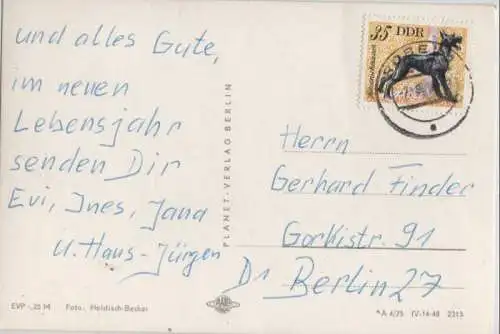 und alles Gute,
im neuen
Lebensjahr
senden Dir
Evi, Ines, Jana
u. Haus-Jürgen
PLANET-VERLAG BERLIN
35 DDR
Herrn
Gerhard Finder
Gorkistr. 91
Berlin 27
EVP -,25 M Foto: Holdisch-Becker
A 4/75 IV-14-48 2315